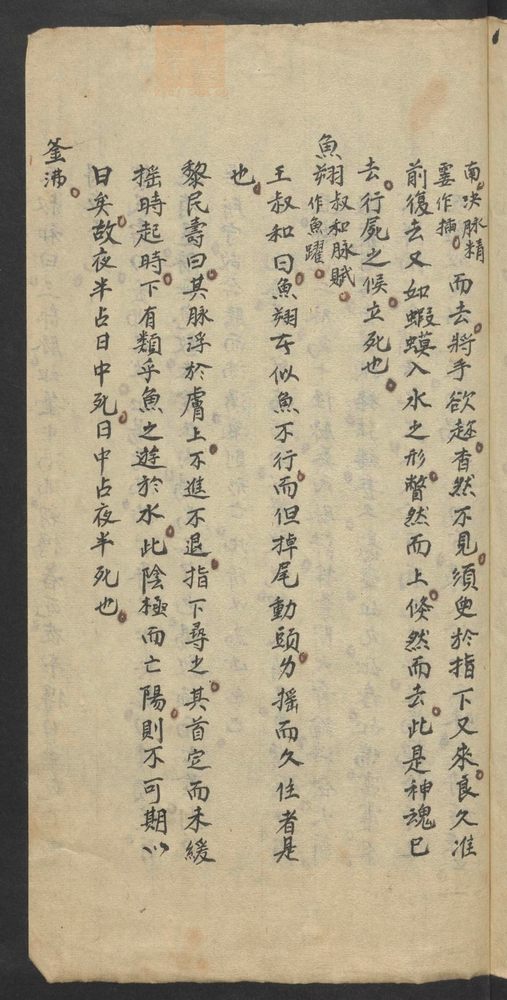 南决脉精
要作捕
而去將手欲趂杳然不見須臾於指下又來良久准
前復去又如蝦蟆入水之形瞥然而上倐然而去此是神魂已
去行屍之候立死也
魚翔
叔和脉賦
作魚躍
王叔和曰魚翔似魚不行而但掉尾動頭身摇而久住者是
也
黎民壽曰其脉浮於膚上不進不退指下尋之其首定而末緩
摇時起時下有類乎魚之遊於水此陰極而亡陽則不可期以
日矣故夜半占日中死日中占夜半死也
釜沸